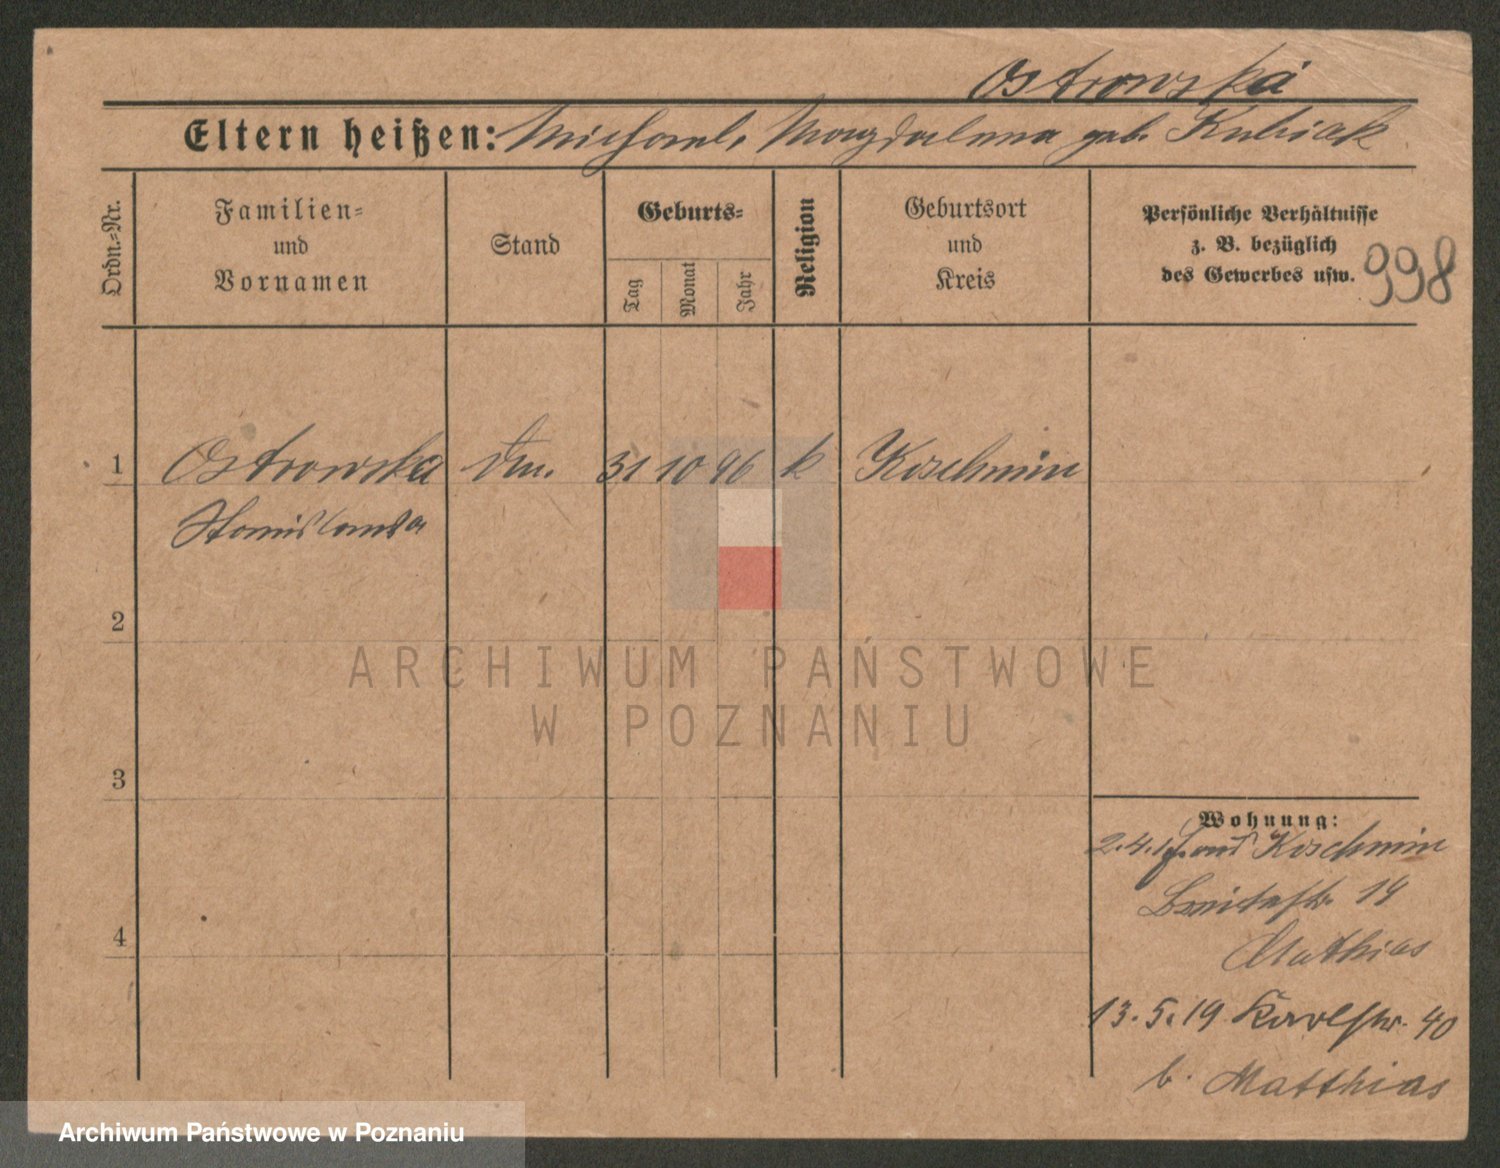 Ostrowska
Eltern heißen: Michael, Magdalena geb. Kubiak
Ordn.-Nr.
Familien-
und
Vornamen
Stand
Geburts-
Tag
Monat
Jahr
Religion
Geburtsort
und
Kreis
Persönliche Verhältnisse
z. B. bezüglich
des Gewerbes usw.
998
1 Ostrowska 31 10 96 k Koschmin
Stanislawa
2
ARCHIWUM PAŃSTWOWE
W POZNANIU
3
Wohnung:
2.4. Koschmin
Breitestr. 14
Mathias
4
13.5.19 Karlstr. 40
b. Matthias
Archiwum Państwowe w Poznaniu